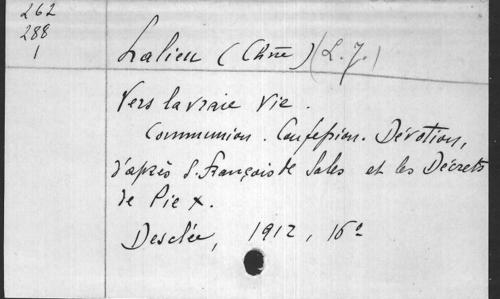 262
288
1
Lalieu (Chne) (L. J.)
Vers la vraie Vie.
Communion. Confession. Dévotion,
d'après S. François de Sales et les Décrets
de Pie X.
Desclée, 1912, 16°